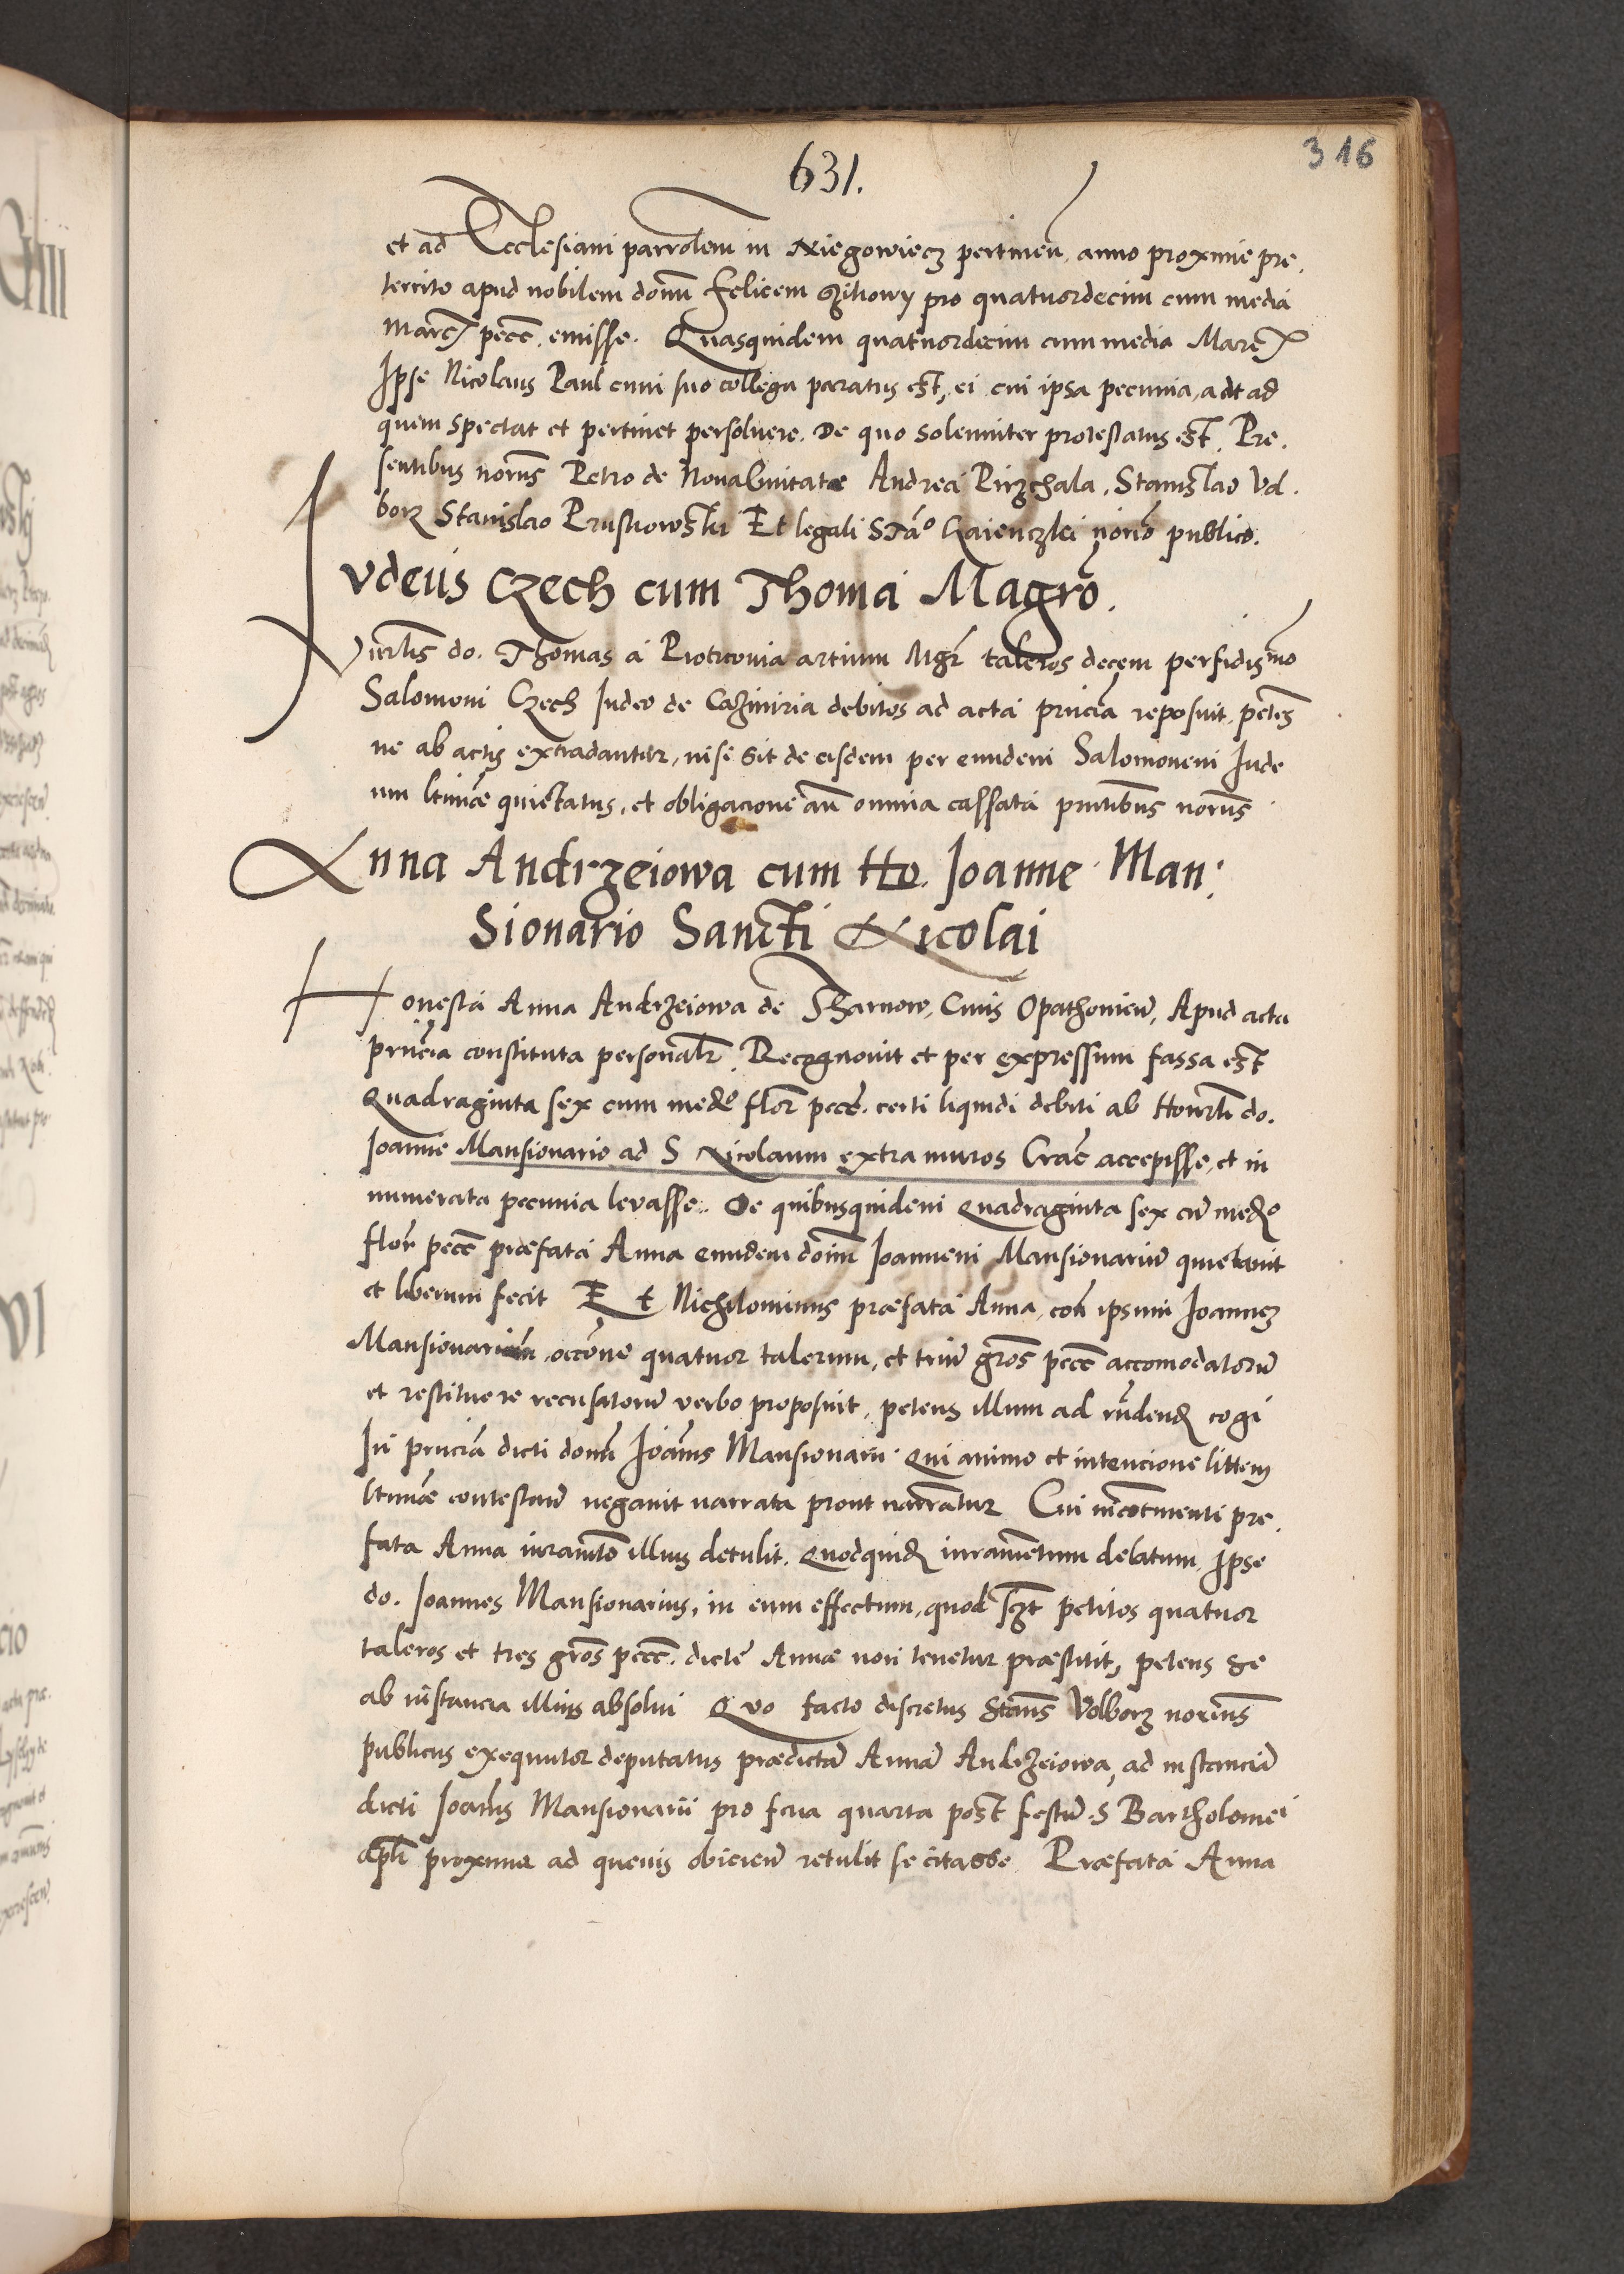 316
631.
et ad Ecclesiam parrolem in Niegowiecz pertineñ. anno proxime pre.
terito apud nobilem domñ Felicem pro quatuordecim cum media
Marcȝ pecc. emisse. Quasquidem quatuordecim cum media Marcȝ
Ipse Nicolaus Paul cum suo collega paratus est, ei cui ipsa pecunia, aut ad
quem spectat et pertinet persoluere. De quo solemniter protestatus est. Pre.
sentibus norijs Petro de Andrea Pirzchala. Stanislao Vol.
borz Stanislao Et legali Stã° noriõ publico.
Iudeus Czech cum Thoma Magrõ.
Vnrlis do. Thomas a artium Mgr̃ taleros decem perfidissmo
Salomoni Czech Iudeo de Cazimiria debitos ad acta prñcia reposuit, petens
ne ab actis extradantur, nisi sit de eisdem per eundem Salomonem Iude
um ltimẽ quietatus, et obligacione añ omnia cassata pñtibus norijs
Anna Andrzeiowa cum Ho. Ioanne Man:
Sionario Sancti Nicolai
Honesta Anna Andrzeiowa de Tharnow, Ciuis Opathouień, Apud acta
prñcia constituta personalr̃. Recognouit et per expressum fassa est
Quadraginta sex cum medº flor̃ pecc. certi liquidi debiti ab Honrli do.
Ioanne Mansionario ad S Nicolaum extra muros Crac̃ accepisse, et in
numerata pecunia levasse. De quibusquidem quadraginta sex cũ medº
flor̃ pecc præfata Anna eundem domñ Ioannem Mansionariũ quietauit
et liberum fecit Et Nichilominus præfata Anna, con̄ ipsum Ioannem
Mansionarium occõne quatuor talerum, et triũ gros̃ pecc accomodatorũ
et restituere recusatorũ verbo proposuit, petens illum ad rñdendȝ cogi
In prñciã dicti domñ Ioãnis Mansionarii. Qui animo et intencione littem
ltimẽ contestanď negauit narrata prout narrantur Cui incõtinenti pre.
fata Anna iuramtõ illius detulit. Quodquidȝ iuramentum delatum, Ipse
do. Ioannes Mansionarius, in eum effectum, quod petitos quatuor
taleros et tres gros̃ pecc. dictẽ Annæ non tenetur præstitit, petens se
ab instancia illius absolui Quo facto discretus Stanˢ Volborz norius
publicus exequutor deputatus prædictã Annã Andrzeiowa, ad instanciã
dicti Ioãnis Mansionarii pro feria quarta post festũ S Bartholomei
apli proxima ad queuis obiicienď retulit se citasse. Præfata Anna